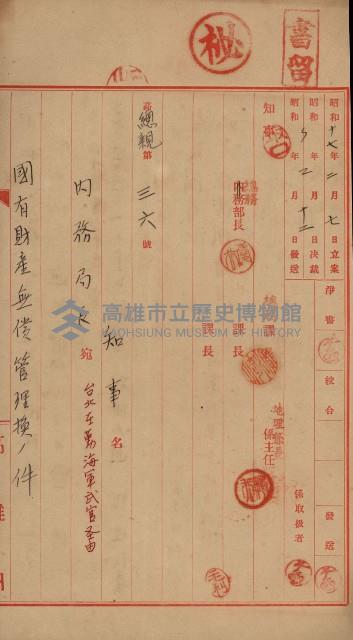 書留
昭和十七年二月七日立案
昭和 年 月 日決裁
昭和 年二月十二日發送
淨書
校合
發送
係取扱者
知事
總務部長
課長
課長
課長
地理係長
係主任
高總親第三六號
內務局長宛
知事名
台北在勤海軍武官經由
國有財產無償管理換ノ件
高雄市立歷史博物館
KAOHSIUNG MUSEUM OF HISTORY
高雄州